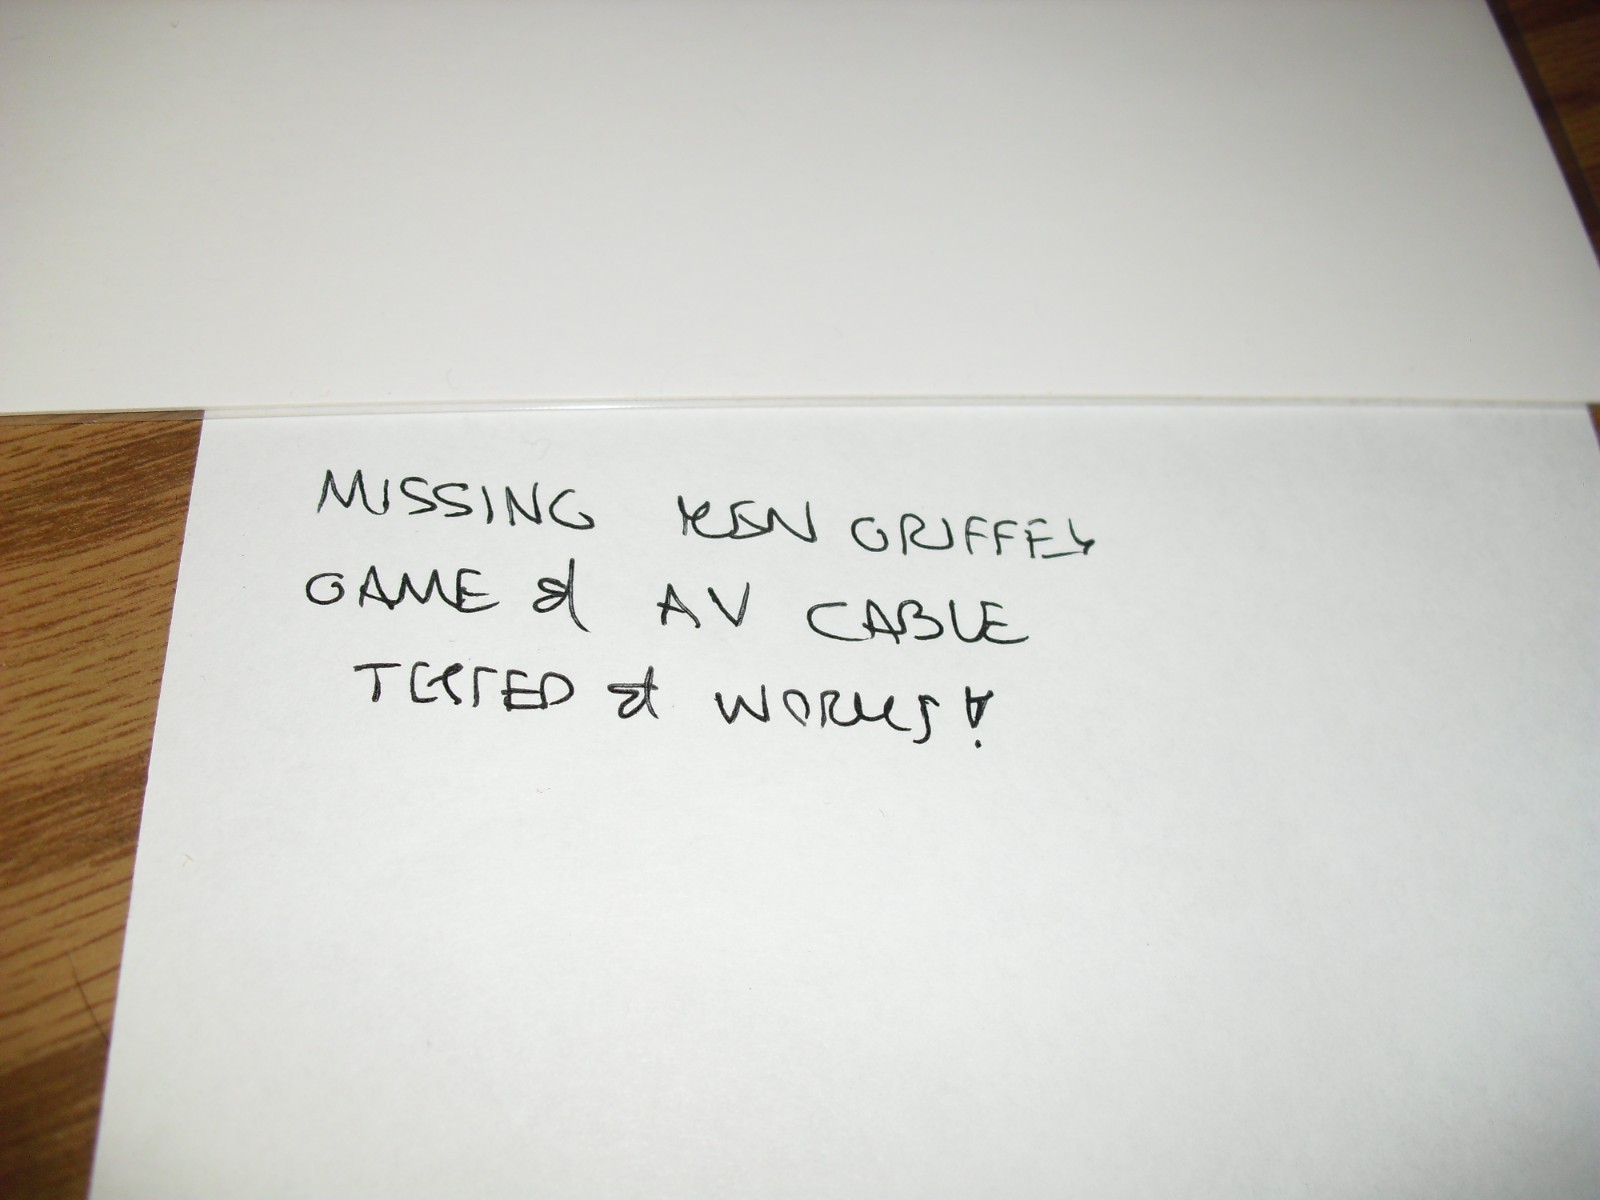 MISSING KEN GRIFFEY
GAME & AV CABLE
TESTED & WORKS!